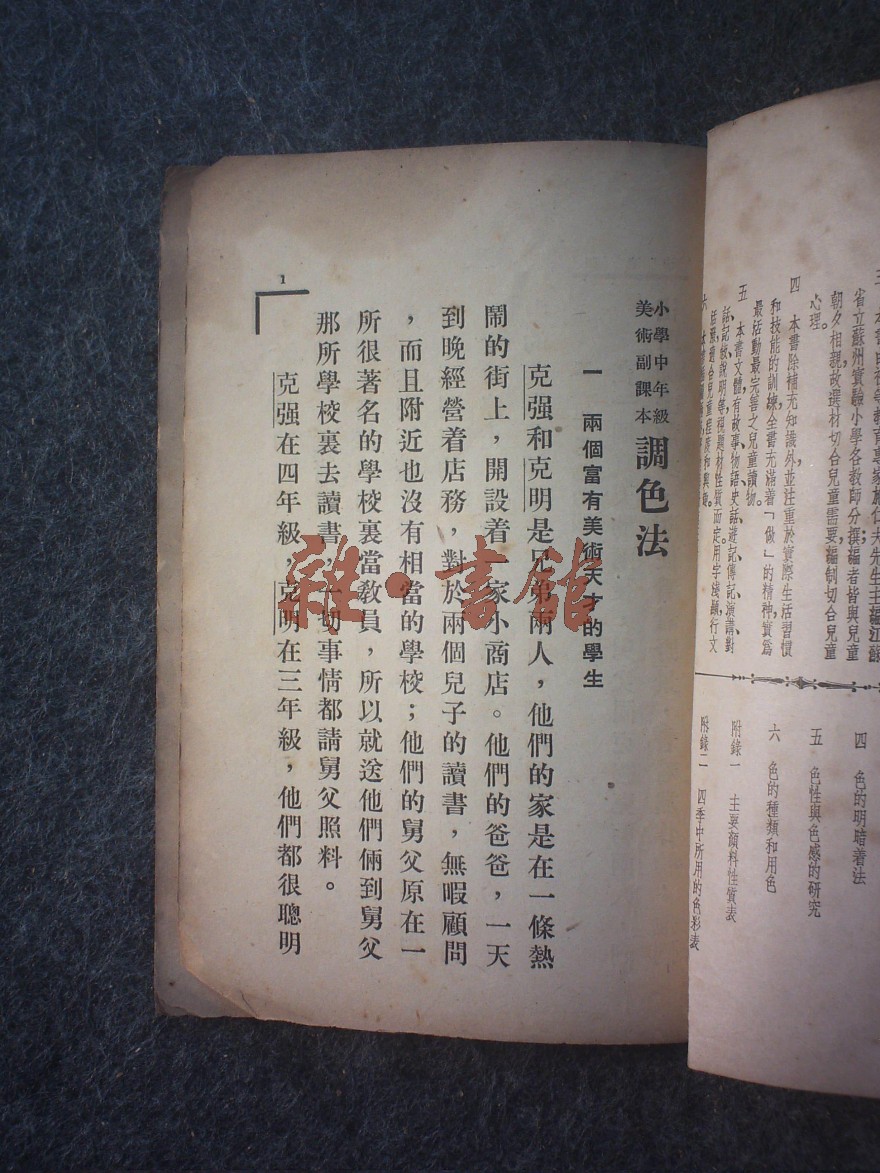 省立蘇州實驗小學各教師分撰；編者皆與兒童
朝夕相親故選材切合兒童需要，編制切合兒童
心理。
四　本書除補充知識外並注重於實際生活習慣
和技能的訓練全書充滿着「做」的精神，實爲
最活動最完善之兒童讀物。
五　本書文體，有故事、物語、史話、遊記、傳記、演講、對
話、記敍、說明等視題材性質而定用字淺顯，行文
四　色的明暗着法
五　色性與色感的研究
六　色的種類和用色
附錄一　主要顏料性質表
附錄二　四季中所用的色彩表
小學中年級
美術副課本
調色法
一　兩個富有美術天才的學生
克强和克明是兄弟兩人，他們的家是在一條熱
鬧的街上，開設着一家小商店。他們的爸爸，一天
到晚經營着店務，對於兩個兒子的讀書，無暇顧問
，而且附近也沒有相當的學校；他們的舅父原在一
所很著名的學校裏當敎員，所以就送他們倆到舅父
那所學校裏去讀書，一切事情都請舅父照料。
克强在四年級，克明在三年級，他們都很聰明
1
雜·書館